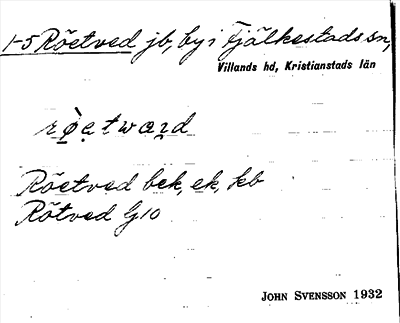 1-5 Röetved jb, by i Fjälkestads sn,
Villands hd, Kristianstads län
rø̀ętwaɽd
Röetved bek, ek, kb
Rötved G10
JOHN SVENSSON 1932